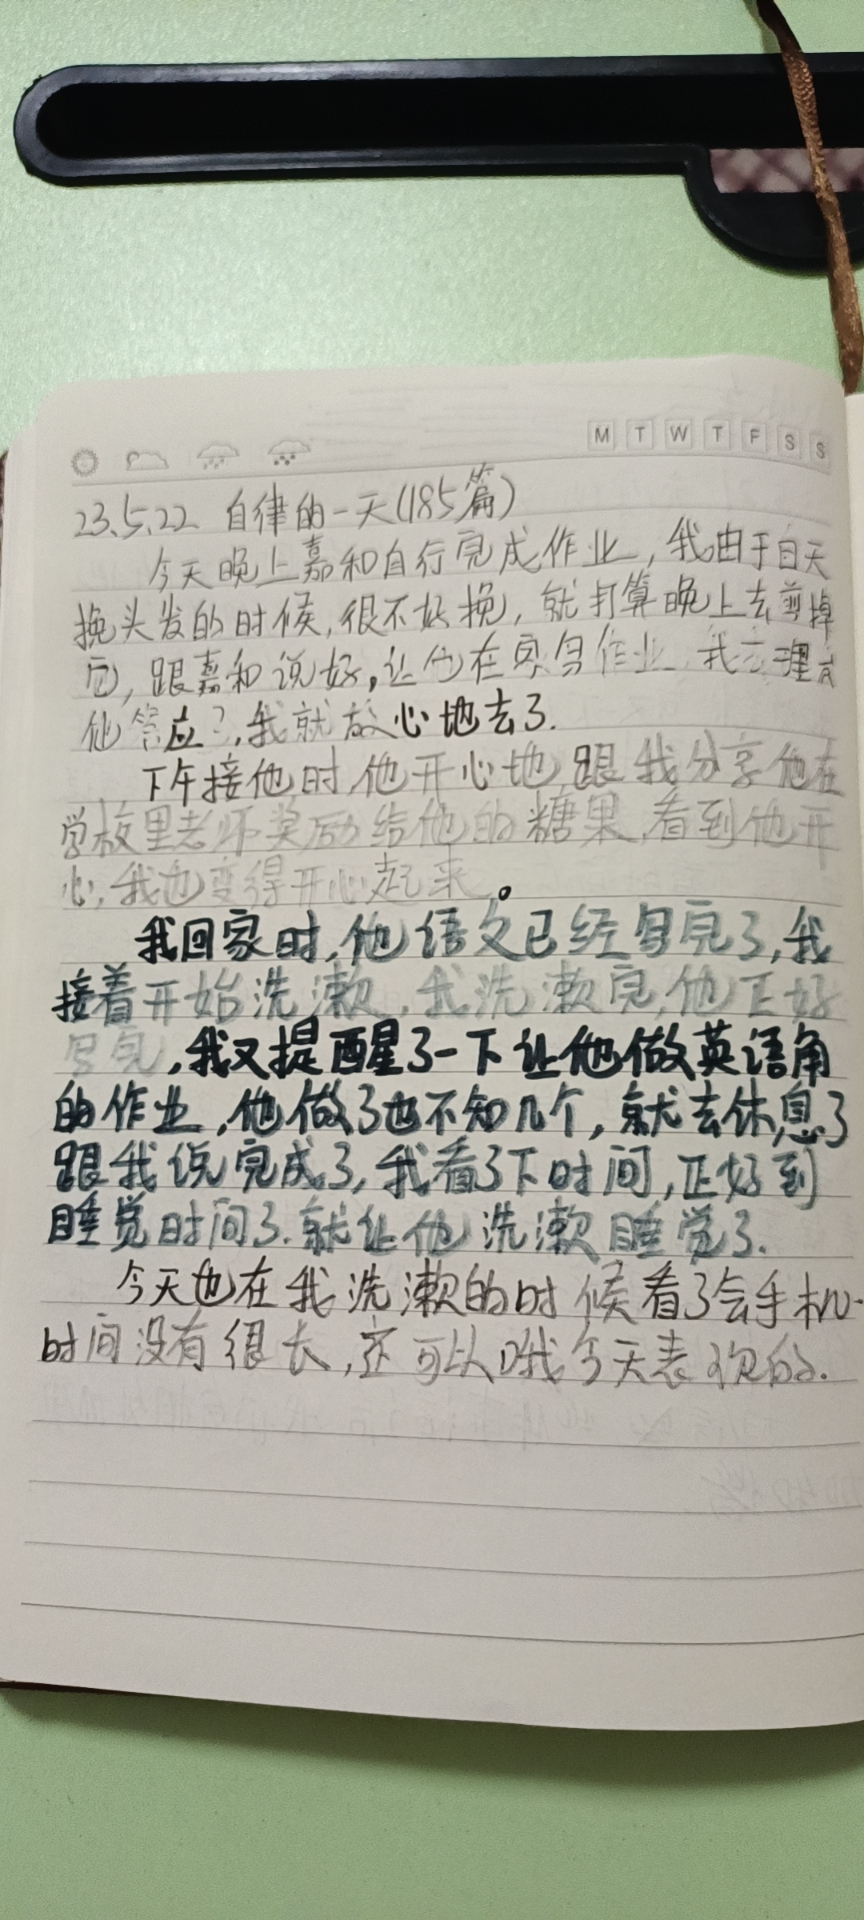 M T W T F S S
23.5.22 自律的一天(185篇)
今天晚上嘉和自行完成作业,我由于白天
挽头发的时候,很不好挽,就打算晚上去剪掉
它,跟嘉和说好,让他在家写作业 我去理发
他答应了,我就放心地去了.
下午接他时,他开心地跟我分享他在
学校里老师奖励给他的糖果,看到他开
心,我也变得开心起来。
我回家时,他语文已经写完了,我
接着开始洗漱,我洗漱完,他正好
写完,我又提醒了一下让他做英语角
的作业,他做了也不知几个,就去休息了
跟我说完成了,我看了下时间,正好到
睡觉时间了.就让他洗漱睡觉了.
今天也在我洗漱的时候看了会手机.
时间没有很长,还可以哦今天表现的.